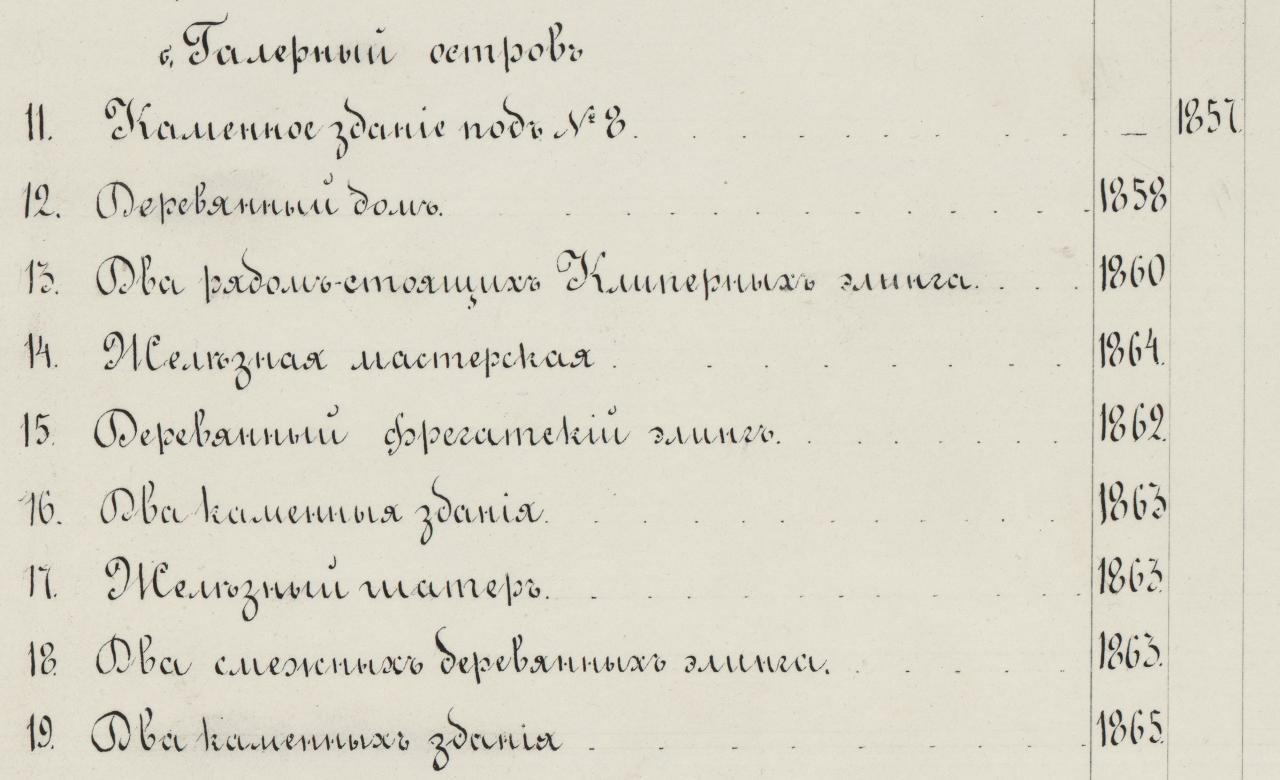 б, Галерный островъ
11. Каменное зданіе подъ № 8. — 1857.
12. Деревянный домъ. 1858
13. Два рядомъ-стоящихъ Клиперныхъ элинга. 1860
14. Желѣзная мастерская. 1864.
15. Деревянный фрегатскій элингъ. 1862.
16. Два каменныя зданія. 1863
17. Желѣзный шатеръ. 1863.
18. Два смежныхъ деревянныхъ элинга. 1863.
19. Два каменныхъ зданія 1865.